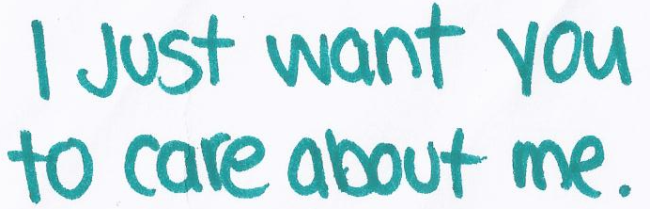 I just want you
to care about me.